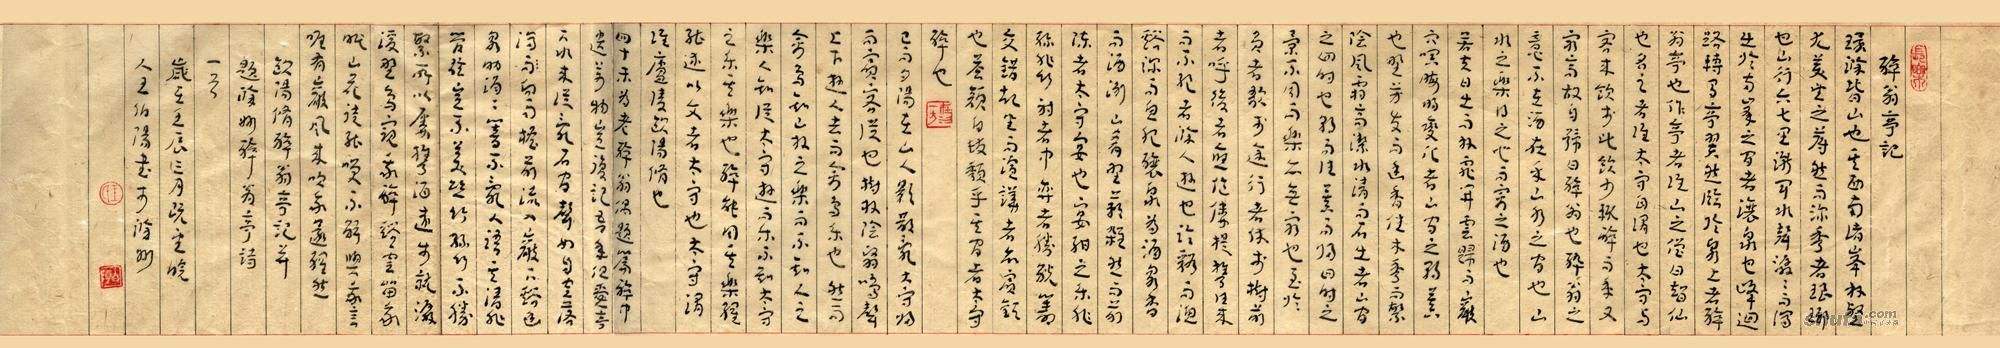 醉翁亭記
環滁皆山也其西南諸峯林壑
尤美望之蔚然而深秀者琅琊
也山行六七里漸聞水聲潺潺而瀉
出於兩峯之間者讓泉也峰迴
路轉有亭翼然臨於泉上者醉
翁亭也作亭者誰山之僧曰智仙
也名之者誰太守自謂也太守與
客來飲於此飲少輒醉而年又
最高故自號曰醉翁也醉翁之
意不在酒在乎山水之間也山
水之樂得之心而寓之酒也
若夫日出而林霏開雲歸而巖
穴暝晦明變化者山間之朝暮
也野芳發而幽香佳木秀而繁
陰風霜高潔水清而石出者山間
之四時也朝而往暮而歸四時之
景不同而樂亦無窮也至於
負者歌於途行者休於樹前
者呼後者應傴僂提攜往來
而不絕者滁人遊也臨谿而漁
谿深而魚肥釀泉為酒泉香
而酒洌山肴野蔌雜然而前
陳者太守宴也宴酣之樂非
絲非竹射者中弈者勝觥籌
交錯起坐而諠譁者衆賓歡
也蒼顏白髮頹乎其間者太守
醉也
已而夕陽在山人影散亂太守歸
而賓客從也樹林陰翳鳴聲
上下遊人去而禽鳥樂也然而
禽鳥知山林之樂而不知人之
樂人知從太守遊而樂不知太守
之樂其樂也醉能同其樂醒
能述以文者太守也太守謂
誰廬陵歐陽脩也
四十未為老醉翁偶題篇醉中
遺萬物豈復記吾年但愛亭
下水來從亂石間聲如自空落
瀉向兩簷前流入巖下谿幽
泉助涓涓響不亂人語其清非
管絃豈不美絲竹絲竹不勝
繁所以屢攜酒遠步就潺
湲野鳥窺我醉谿雲留我
眠山花徒能笑不解與我言
唯有巖風來吹我還醒然
歐陽脩醉翁亭記并
題滁州醉翁亭詩
一首
歲在壬辰三月既望皖
人王伯陽書於滁州